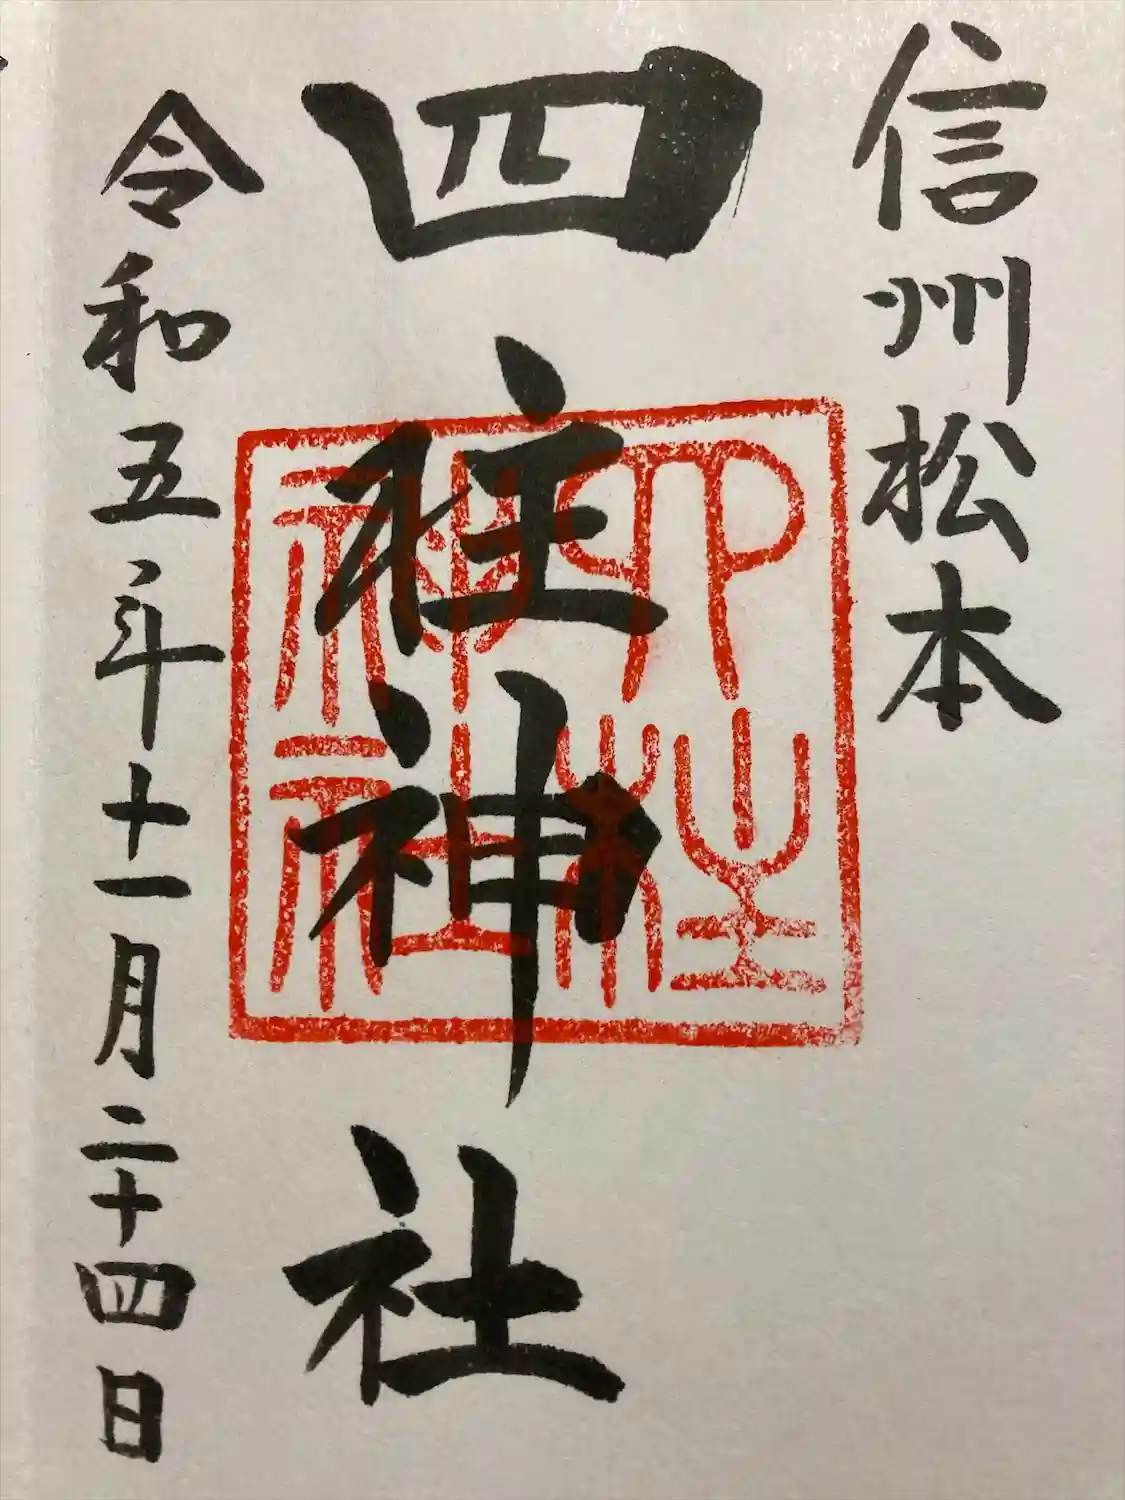 信州松本
四柱神社
四柱神社
令和五年十一月二十四日